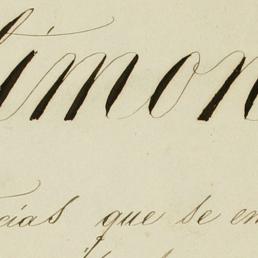 imon
cias que se en